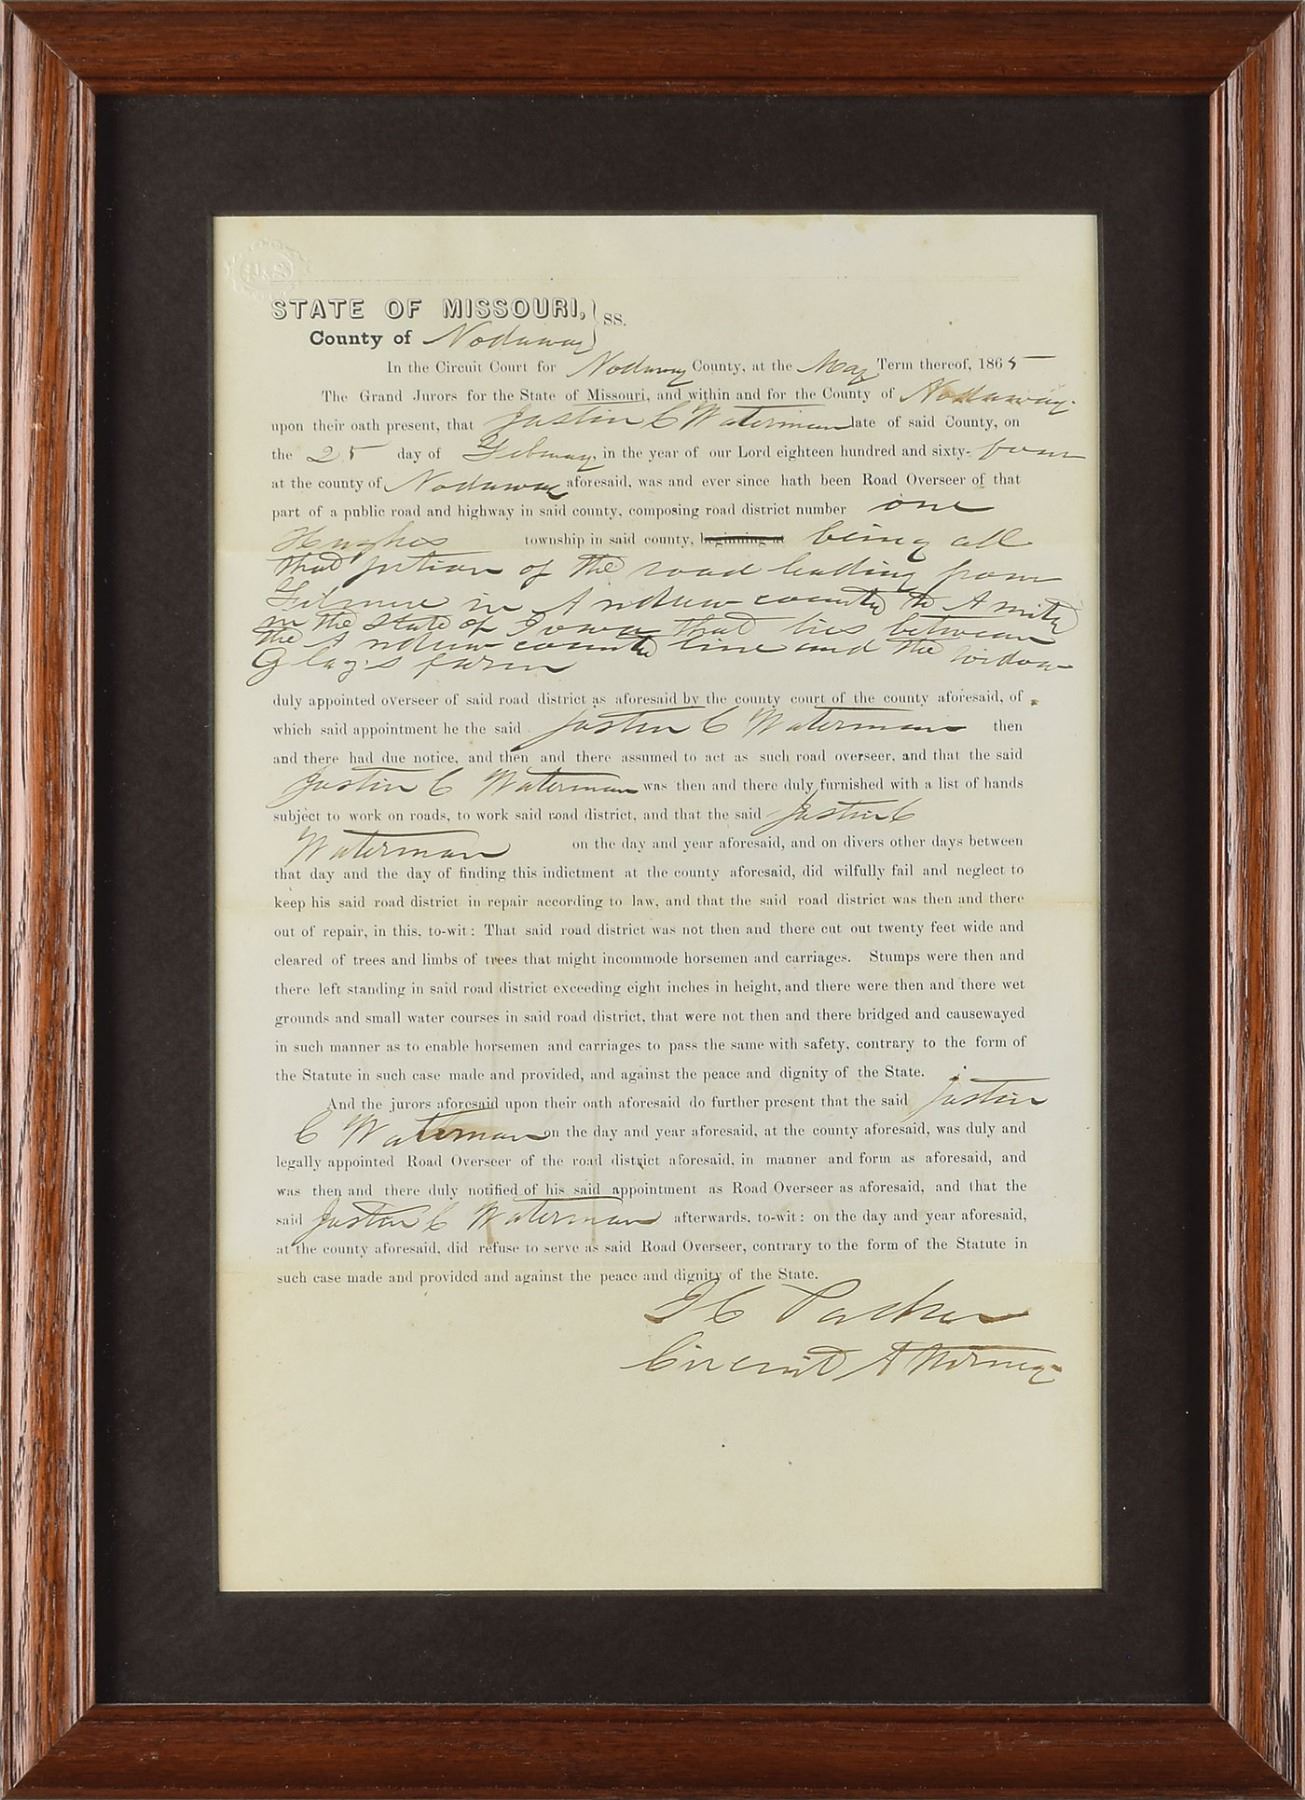 STATE OF MISSOURI, } SS.
County of Nodaway
In the Circuit Court for Nodaway County, at the May Term thereof, 1865
The Grand Jurors for the State of Missouri, and within and for the County of Nodaway
upon their oath present, that Justin C Waterman late of said County, on
the 25 day of February in the year of our Lord eighteen hundred and sixty- four
at the county of Nodaway aforesaid, was and ever since hath been Road Overseer of that
part of a public road and highway in said county, composing road district number one
Hughes township in said county, beginning at being all
that portion of the road leading from
in Andrew county to Amity
in the State of Iowa that lies between
the Andrew county line and the widow
farm
duly appointed overseer of said road district as aforesaid by the county court of the county aforesaid, of
which said appointment he the said Justin C Waterman then
and there had due notice, and then and there assumed to act as such road overseer, and that the said
Justin C Waterman was then and there duly furnished with a list of hands
subject to work on roads, to work said road district, and that the said Justin C
Waterman on the day and year aforesaid, and on divers other days between
that day and the day of finding this indictment at the county aforesaid, did wilfully fail and neglect to
keep his said road district in repair according to law, and that the said road district was then and there
out of repair, in this, to-wit: That said road district was not then and there cut out twenty feet wide and
cleared of trees and limbs of trees that might incommode horsemen and carriages. Stumps were then and
there left standing in said road district exceeding eight inches in height, and there were then and there wet
grounds and small water courses in said road district, that were not then and there bridged and causewayed
in such manner as to enable horsemen and carriages to pass the same with safety, contrary to the form of
the Statute in such case made and provided, and against the peace and dignity of the State.
And the jurors aforesaid upon their oath aforesaid do further present that the said Justin
C Waterman on the day and year aforesaid, at the county aforesaid, was duly and
legally appointed Road Overseer of the road district aforesaid, in manner and form as aforesaid, and
was then and there duly notified of his said appointment as Road Overseer as aforesaid, and that the
said Justin C Waterman afterwards, to-wit: on the day and year aforesaid,
at the county aforesaid, did refuse to serve as said Road Overseer, contrary to the form of the Statute in
such case made and provided and against the peace and dignity of the State.
I C Parker
Circuit Attorney